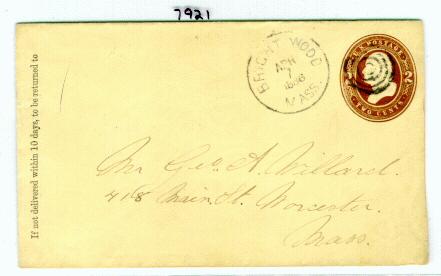 7921
BRIGHTWOOD
APR
1
1886
MASS.
U.S. POSTAGE
TWO CENTS
If not delivered within 10 days, to be returned to
Mr Geo. A. Willard.
418 Main St. Worcester.
Mass.